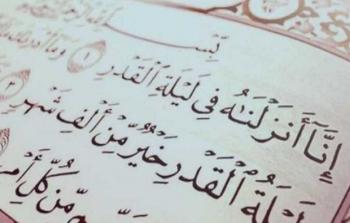 بِسْ
إِنَّآ أَنزَلْنَٰهُ فِي لَيْلَةِ ٱلْقَدْرِ ١ وَمَآ
لَيْلَةُ ٱلْقَدْرِ خَيْرٌ مِّنْ أَلْفِ شَهْرٍ ٣
مِّن كُلِّ